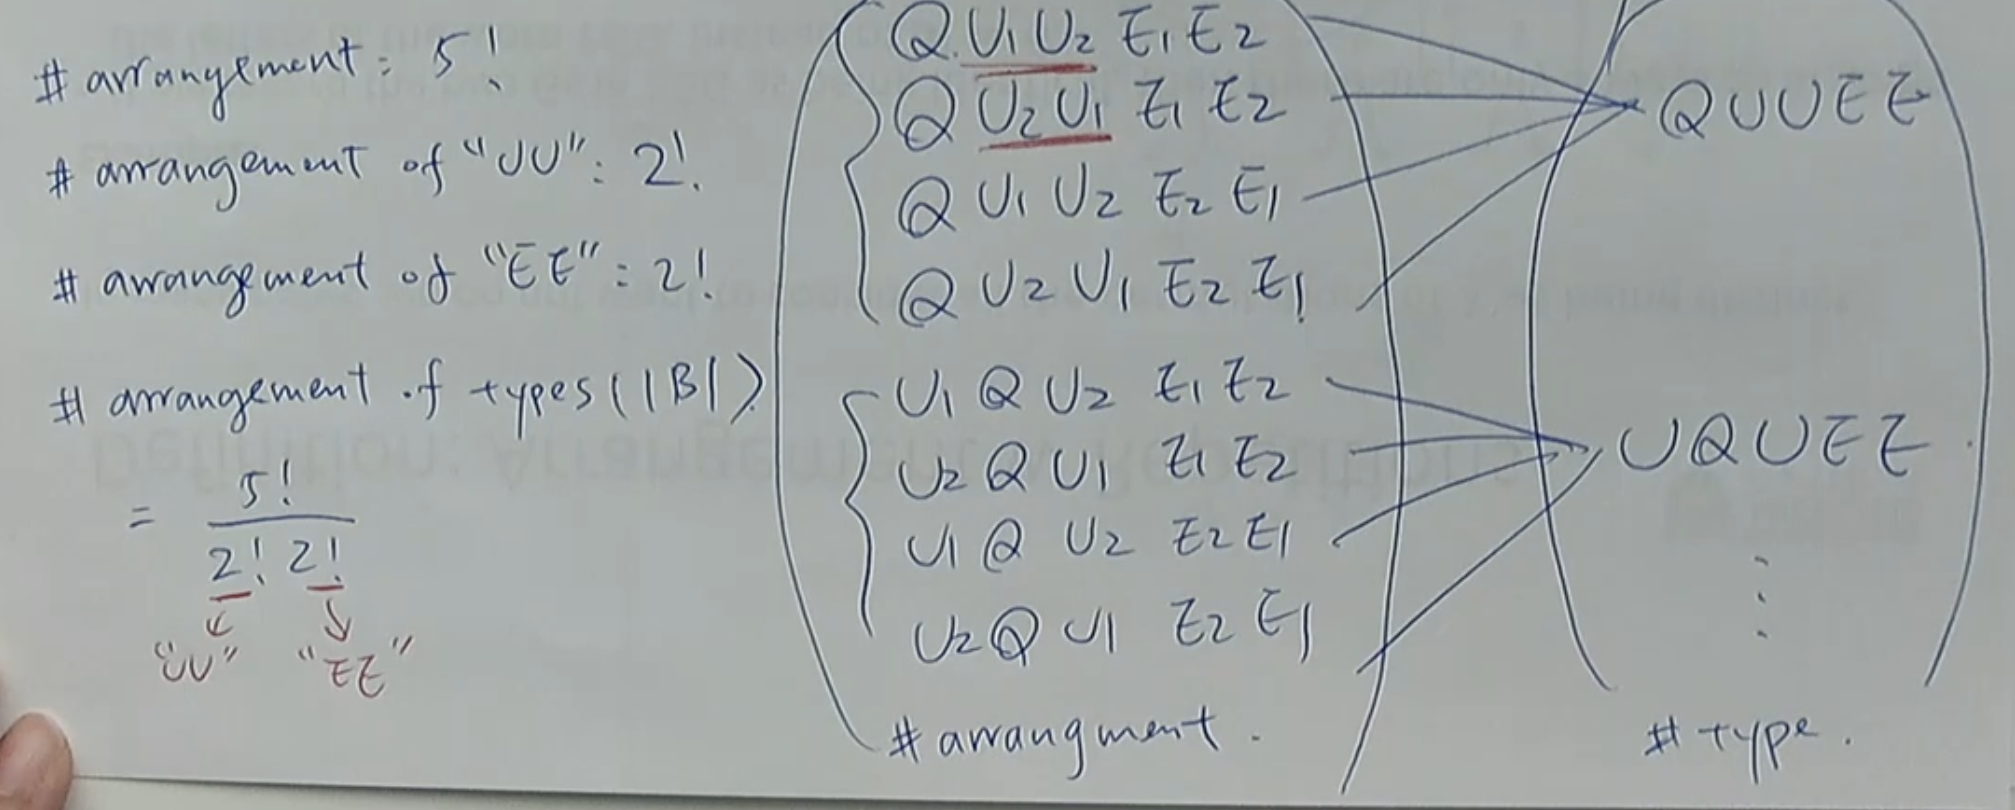 # arrangement: 5!
# arrangement of "UU": 2!
# arrangement of "EE": 2!
# arrangement of types (|B|)
= 5! / 2! 2!
"UU" "EE"
Q U1 U2 E1 E2
Q U2 U1 E1 E2
Q U1 U2 E2 E1
Q U2 U1 E2 E1
U1 Q U2 E1 E2
U2 Q U1 E1 E2
U1 Q U2 E2 E1
U2 Q U1 E2 E1
# arrangment.
QUUEE
UQUEE
⋮
# type.
Definition: Arrangement